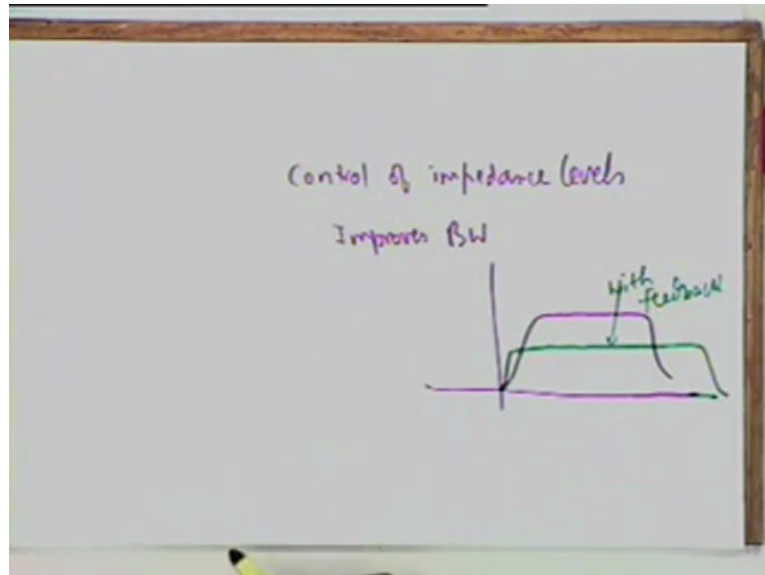 Control of impedance levels
Improves BW
with
feedback